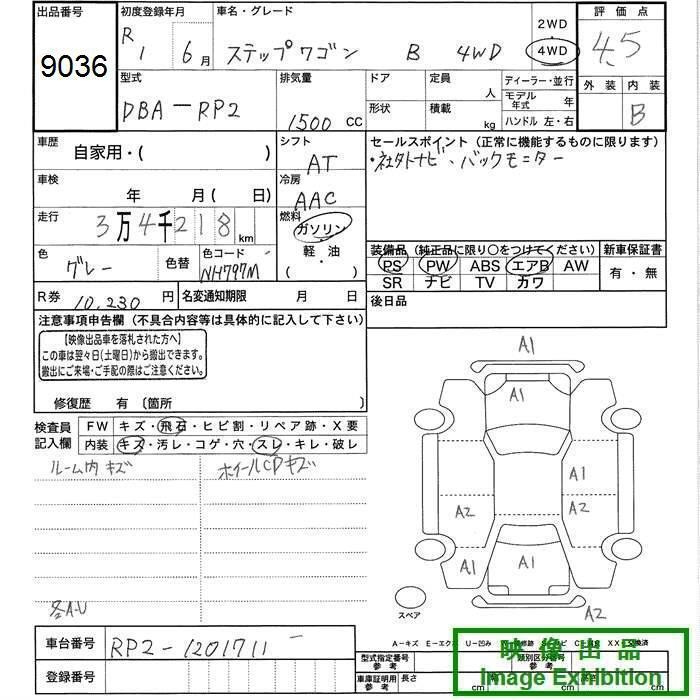 出品番号
9036
初度登録年月
R 1 6月
車名・グレード
ステップワゴン B 4WD
2WD
4WD
評価点
4.5
型式
DBA-RP2
排気量
1500cc
ドア
形状
定員 人
積載 kg
ディーラー・並行
モデル年式 年
ハンドル 左・右
外装
内装
B
車歴
自家用・( )
シフト
AT
セールスポイント(正常に機能するものに限ります)
・社外ナビ、バックモニター
車検
年 月( 日)
冷房
AAC
走行
3万4千218km
燃料
ガソリン
軽・油
( )
色
グレー
色替
色コード
NH797M
装備品(純正品に限り○をつけてください)
PS PW ABS エアB AW
SR ナビ TV カワ
新車保証書
有・無
R券
10,230円
名変通知期限 月 日
後日品
注意事項申告欄(不具合内容等は具体的に記入して下さい)
【映像出品車を落札された方へ】
この車は翌々日(土曜日)から搬出できます。
搬出にご来場・ご手配の際はご注意ください。
修復歴 有(箇所 )
検査員
記入欄
FW キズ・飛石・ヒビ割・リペア跡・X要
内装 キズ・汚レ・コゲ・穴・スレ・キレ・破レ
ルーム内キズ
ホイールCDキズ
各A・U
A1
A1
A1
A2
A2
A1
A1
A2
スペア
車台番号
RP2-1201711
登録番号
型式指定番号
参考
類別区分番号
参考
車庫証明用
参考
長さ
cm
cm
cm
映像出品
Image Exhibition